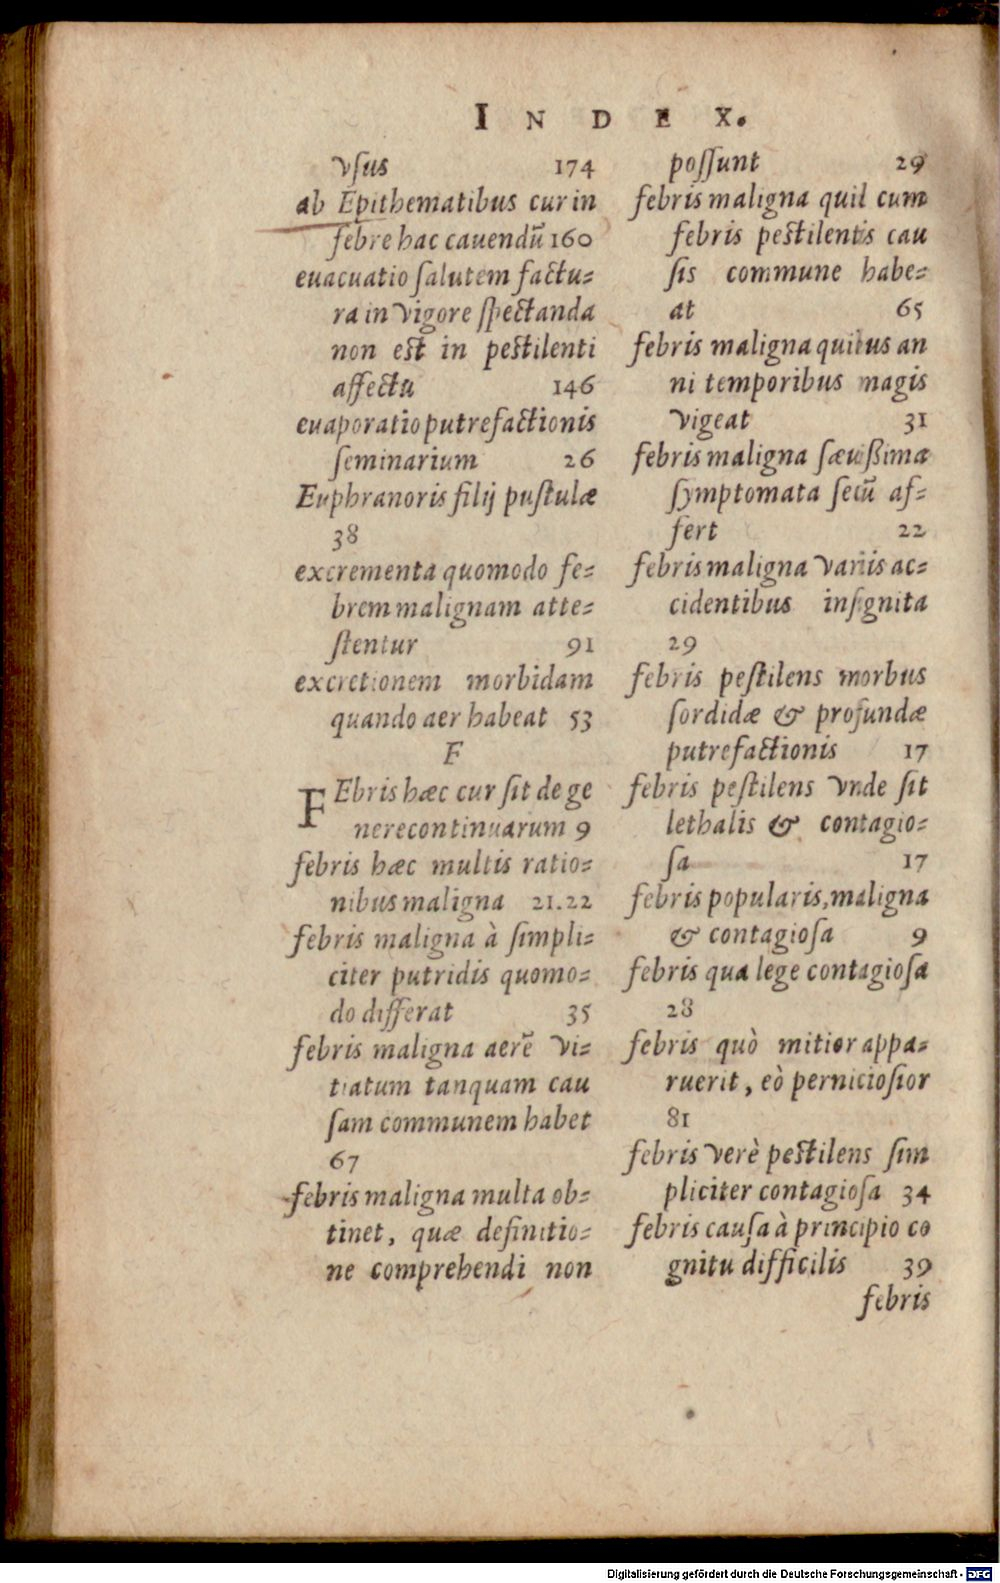 INDEX.
vſus 174
ab Epithematibus cur in
febre hac cauendũ 160
euacuatio ſalutem factu-
ra in vigore ſpectanda
non est in pestilenti
affectu 146
euaporatio putrefactionis
ſeminarium 26
Euphranoris filij puſtulæ
38
excrementa quomodo fe-
brem malignam atte-
ſtentur 91
excretionem morbidam
quando aer habeat 53
F
FEbris hæc cur ſit de ge
nere continuarum 9
febris hæc multis ratio-
nibus maligna 21.22
febris maligna à ſimpli-
citer putridis quomo-
do differat 35
febris maligna aerẽ vi-
tiatum tanquam cau
ſam communem habet
67
febris maligna multa ob-
tinet, quæ definitio-
ne comprehendi non
poſſunt 29
febris maligna quil cum
febris pestilentis cau
ſis commune habe-
at 65
febris maligna quibus an
ni temporibus magis
vigeat 31
febris maligna ſæuißima
ſymptomata ſecũ af-
fert 22
febris maligna variis ac-
cidentibus inſignita
29
febris peſtilens morbus
ſordidæ & profundæ
putrefactionis 17
febris peſtilens vnde ſit
lethalis & contagio-
ſa 17
febris popularis, maligna
& contagioſa 9
febris qua lege contagioſa
28
febris quò mitior appa-
ruerit, eò pernicioſior
81
febris verè pestilens ſim
pliciter contagioſa 34
febris cauſa à principio co
gnitu difficilis 39
febris
Digitalisierung gefördert durch die Deutsche Forschungsgemeinschaft - DFG